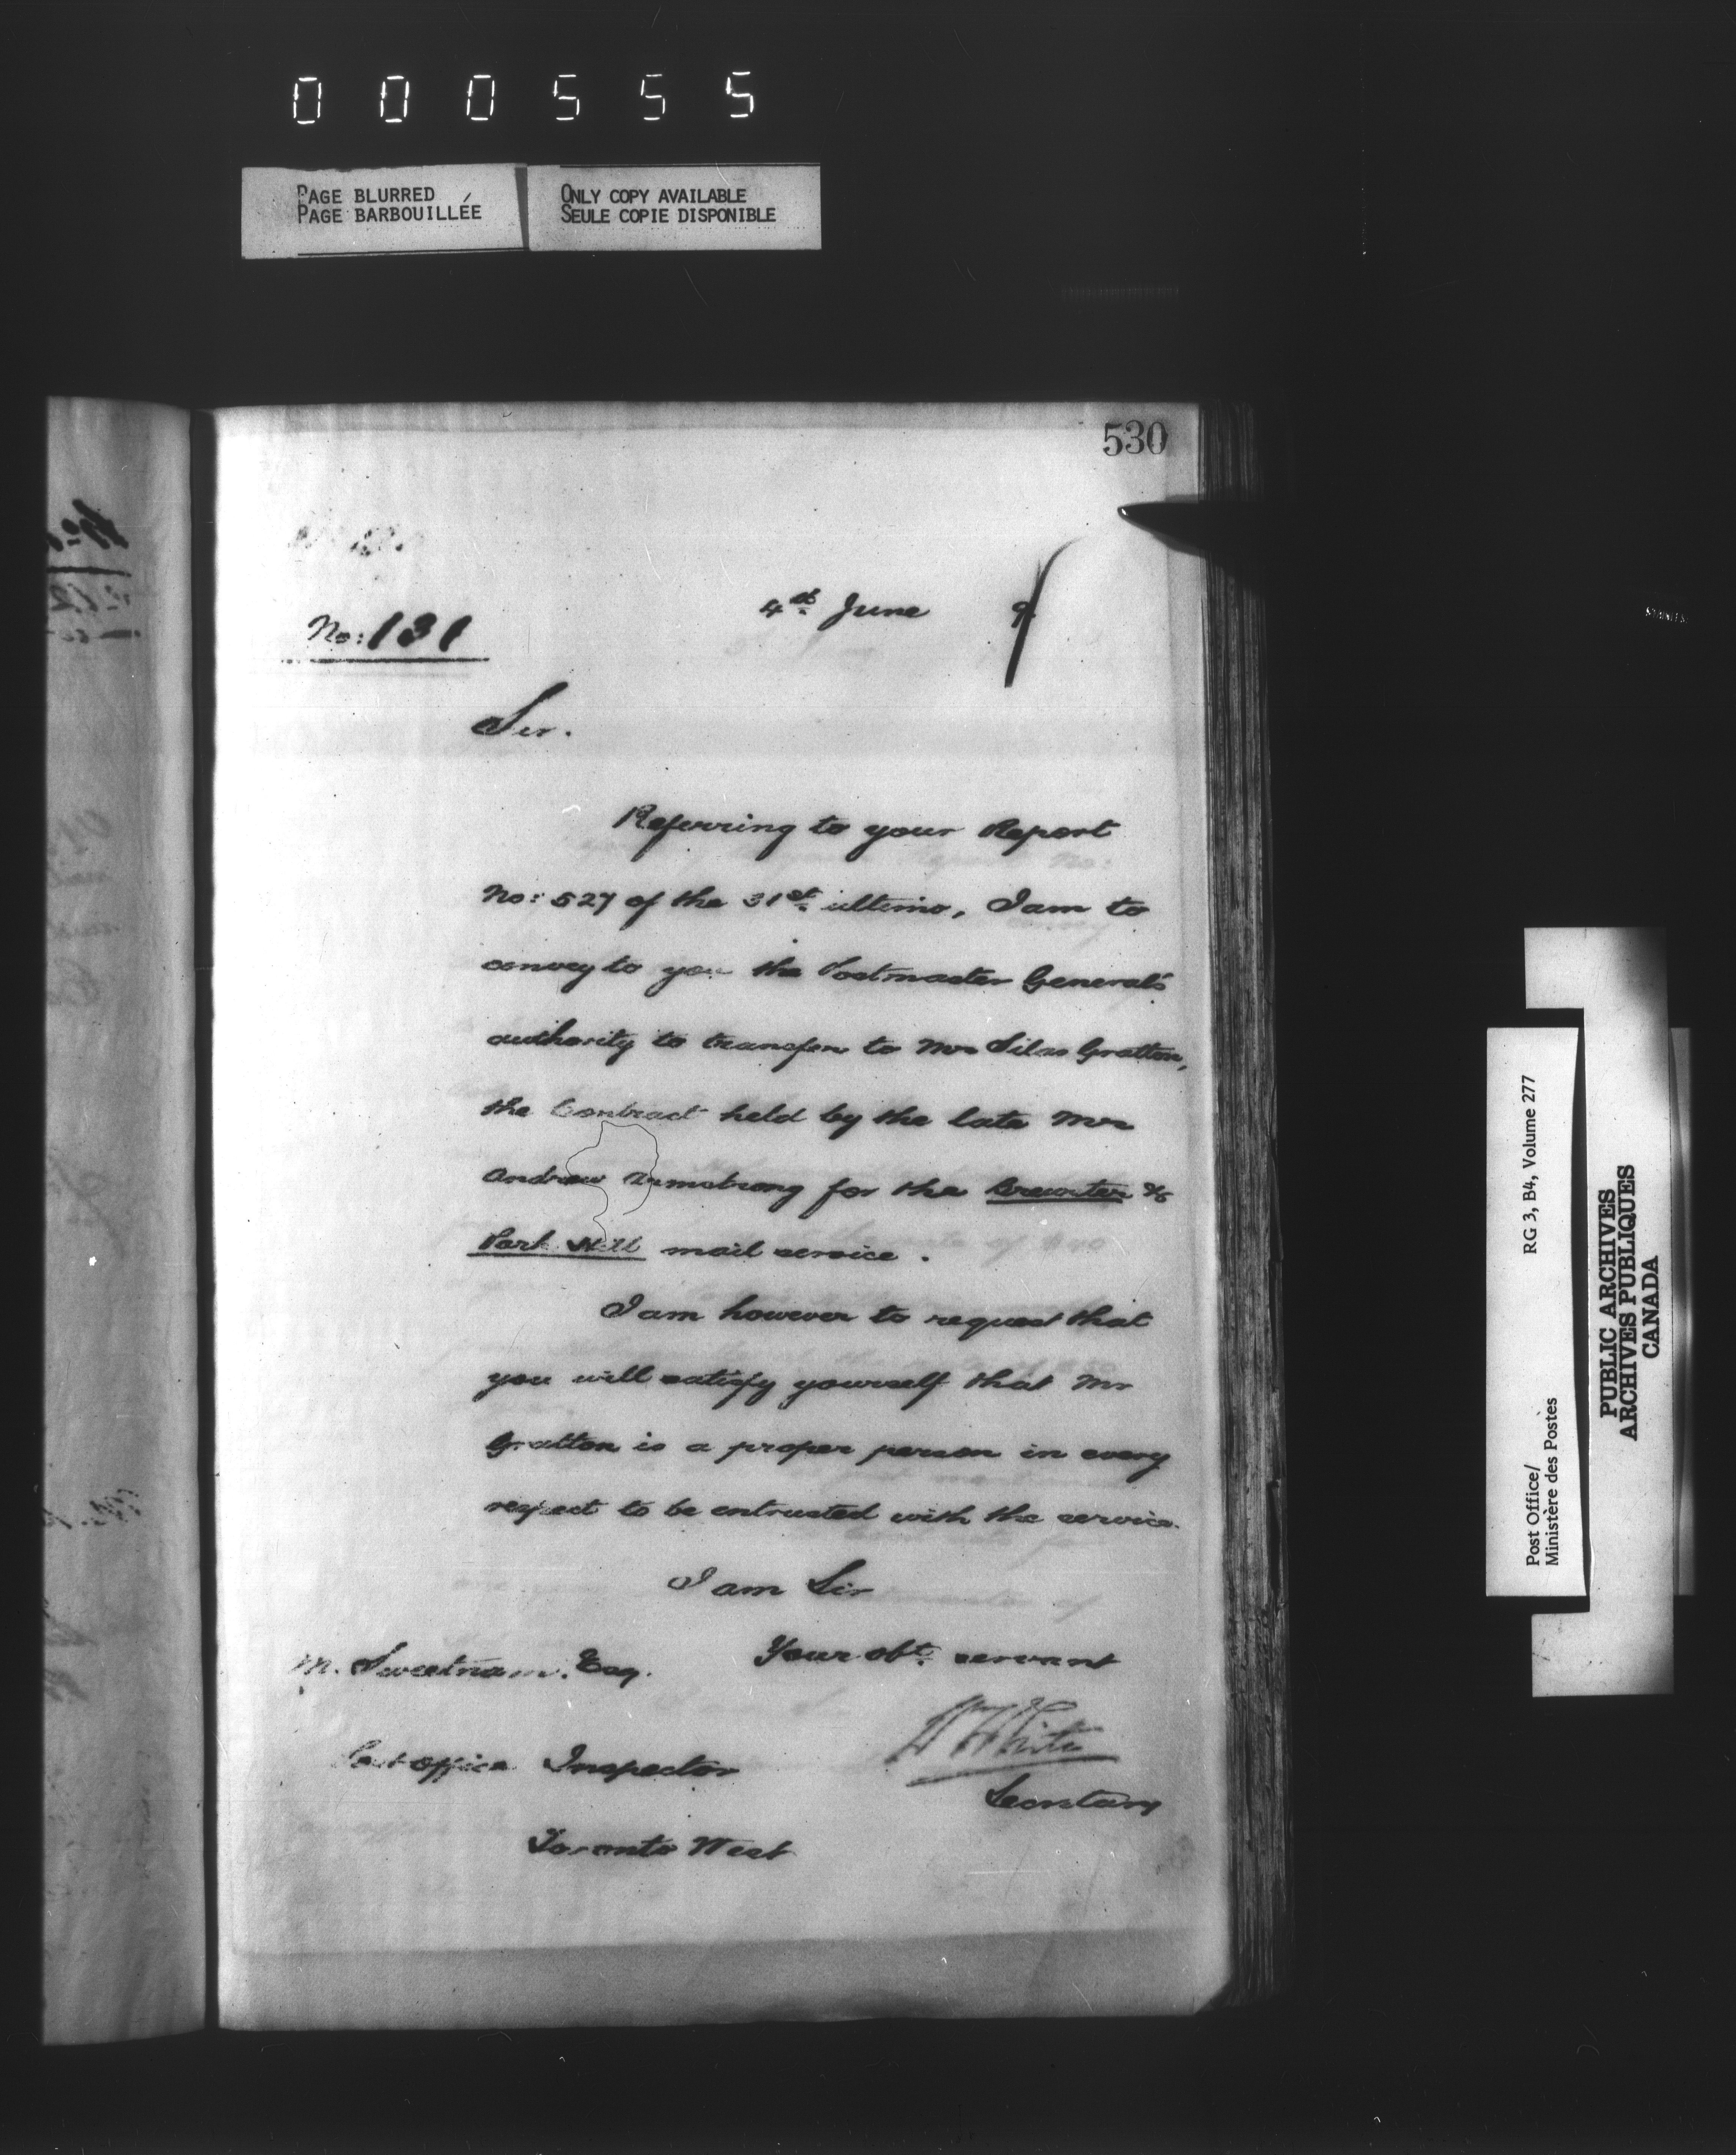 000555
PAGE BLURRED
PAGE BARBOUILLÉE
ONLY COPY AVAILABLE
SEULE COPIE DISPONIBLE
530
4th June 9.
No: 131
Sir.
Referring to your Report
No: 527 of the 31st ultimo, I am to
convey to you the Postmaster General's
authority to transfer to Mr Silas Gratton,
the Contract held by the late Mr
Andrew Armstrong for the Brewster &
Park Hill mail service.
I am however to request that
you will satisfy yourself that Mr
Gratton is a proper person in every
respect to be entrusted with the service.
I am Sir
Your obt. servant
M. Sweetnam. Esq.
White
Post Office Inspector
Secretary
Toronto West
Post Office/
Ministère des Postes
RG 3, B4, Volume 277
PUBLIC ARCHIVES
ARCHIVES PUBLIQUES
CANADA